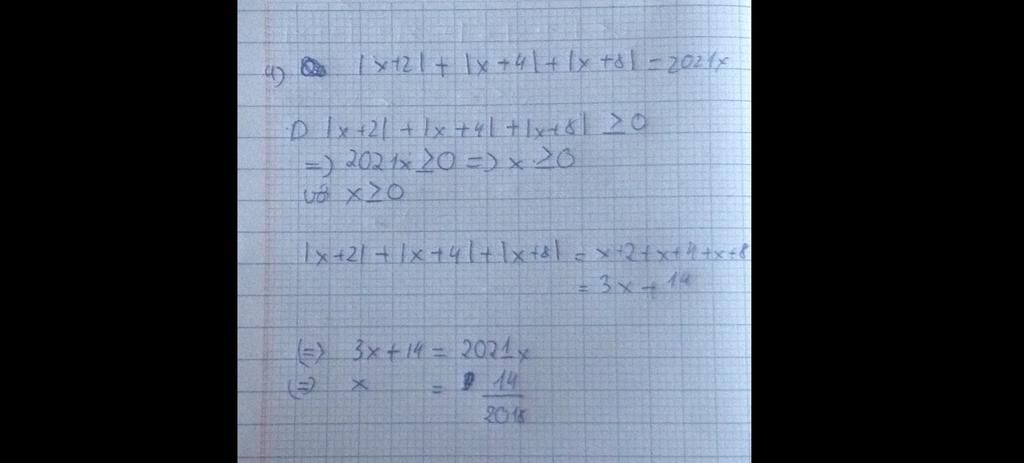 4) |x+2| + |x+4| + |x+8| = 2021x
D |x+2| + |x+4| + |x+8| ≥ 0
=) 2021x ≥ 0 =) x ≥ 0
với x ≥ 0
|x+2| + |x+4| + |x+8| = x+2+x+4+x+8
= 3x + 14
(=) 3x + 14 = 2021x
(=) x = 14
2018